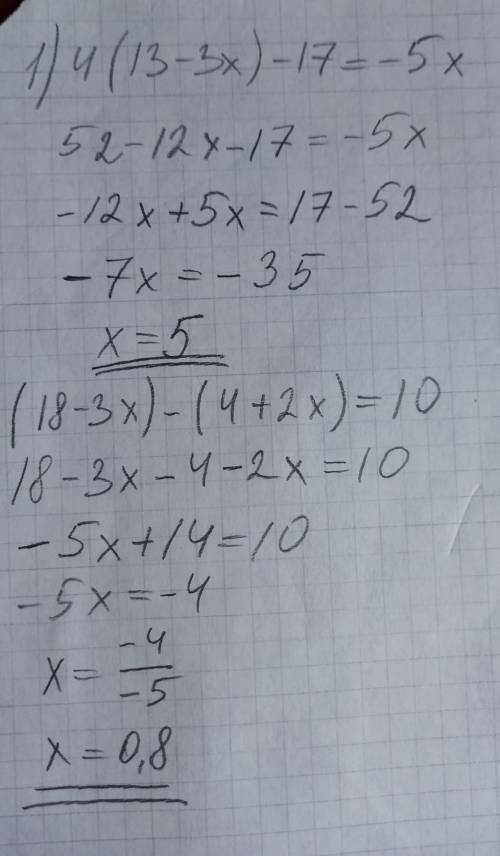 1) 4(13-3x)-17=-5x
52-12x-17=-5x
-12x+5x=17-52
-7x=-35
x=5
(18-3x)-(4+2x)=10
18-3x-4-2x=10
-5x+14=10
-5x=-4
x=-4/-5
x=0,8